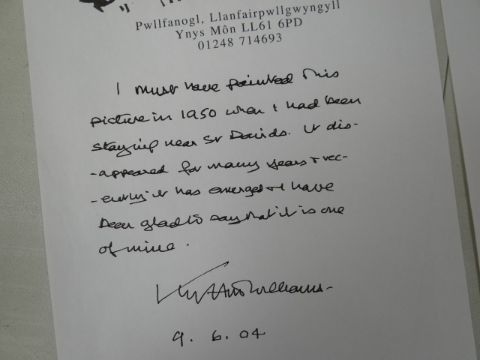 Pwllfanogl, Llanfairpwllgwyngyll
Ynys Môn LL61 6PD
01248 714693
I must have painted this
picture in 1950 when I had been
staying near St Davids. It dis-
-appeared for many years & rec-
-ently it has emerged & I have
been glad to say that it is one
of mine.
Kyffin Williams-
9. 6. 04